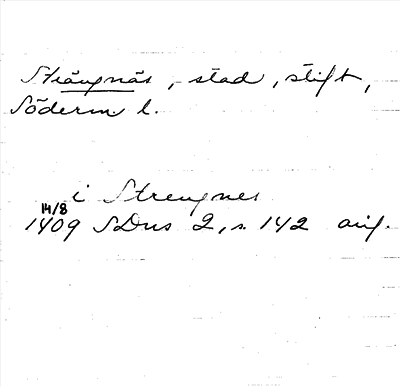 Strängnäs, stad, stift,
Söderm l.
i Strengnes
14/8
1409 SDns 2, s. 142 avs.